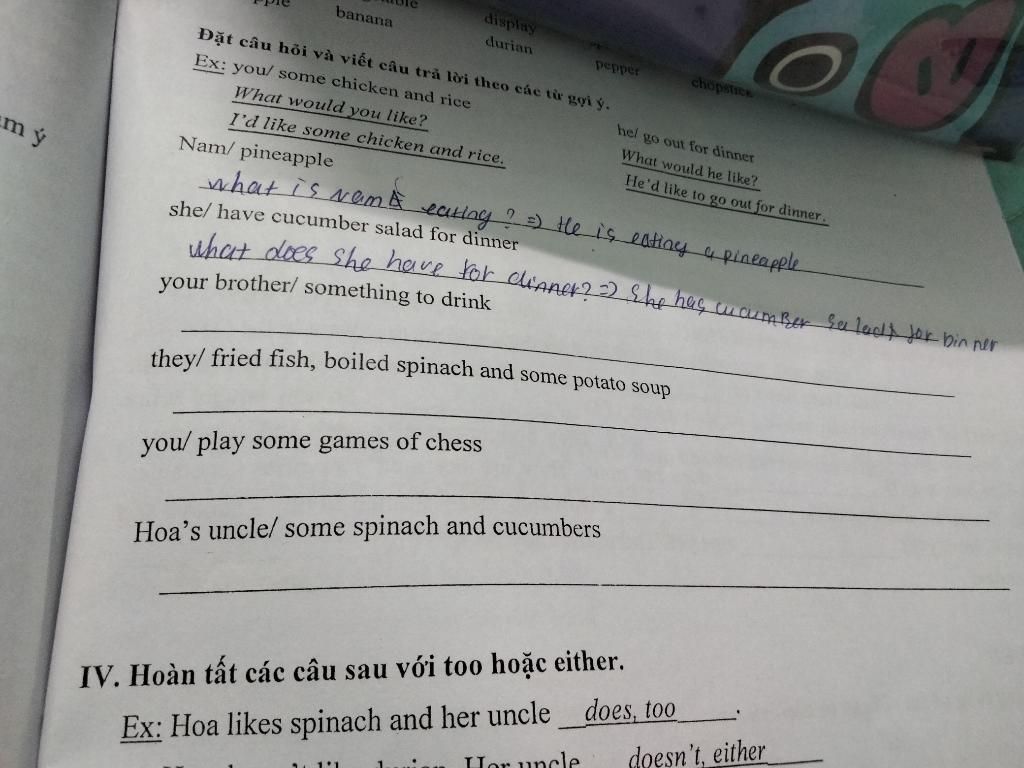 banana
display
durian
pepper
chopstick
m ý
Đặt câu hỏi và viết câu trả lời theo các từ gợi ý.
Ex: you/ some chicken and rice
What would you like?
I'd like some chicken and rice.
he/ go out for dinner
What would he like?
He'd like to go out for dinner.
Nam/ pineapple
what is Nam eating? => He is eating a pineapple
she/ have cucumber salad for dinner
what does she have for dinner? => She has cucumber for binner
your brother/ something to drink
they/ fried fish, boiled spinach and some potato soup
you/ play some games of chess
Hoa's uncle/ some spinach and cucumbers
IV. Hoàn tất các câu sau với too hoặc either.
Ex: Hoa likes spinach and her uncle does, too.
Her uncle doesn't, either